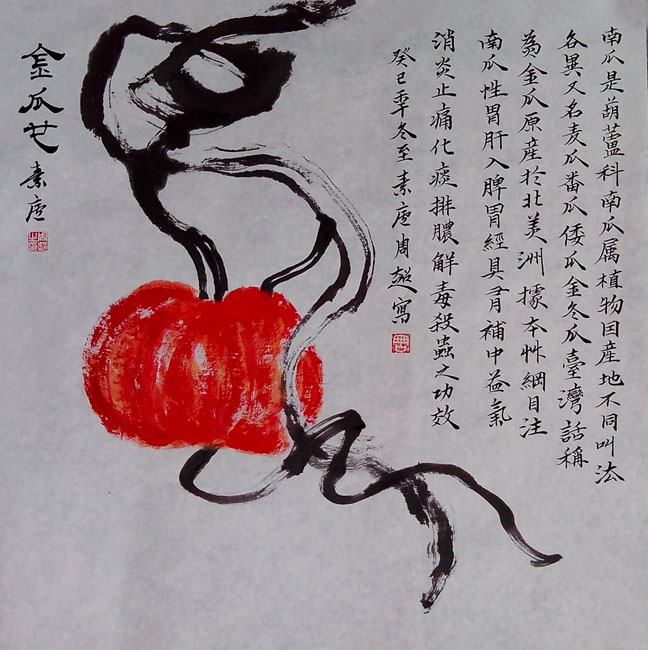 南瓜是葫蘆科南瓜属植物因産地不同叫法
各異又名麦瓜番瓜倭瓜金冬瓜臺灣話稱
為金瓜原産於北美洲據本艸綱目注
南瓜性胃肝入脾胃經具有補中益氣
消炎止痛化痰排膿解毒殺蟲之功效
癸巳年冬至素周超寫
金瓜
素